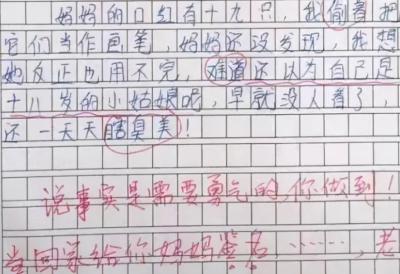 妈妈的口红有十九只，我偷着把
它们当作画笔，妈妈还没发现，我想
她反正也用不完，难道还以为自己是
十八岁的小姑娘呢，早就没人看了，
还一天天瞎臭美！
说事实是需要勇气的，你做到！
当回家给你妈妈签名……，老